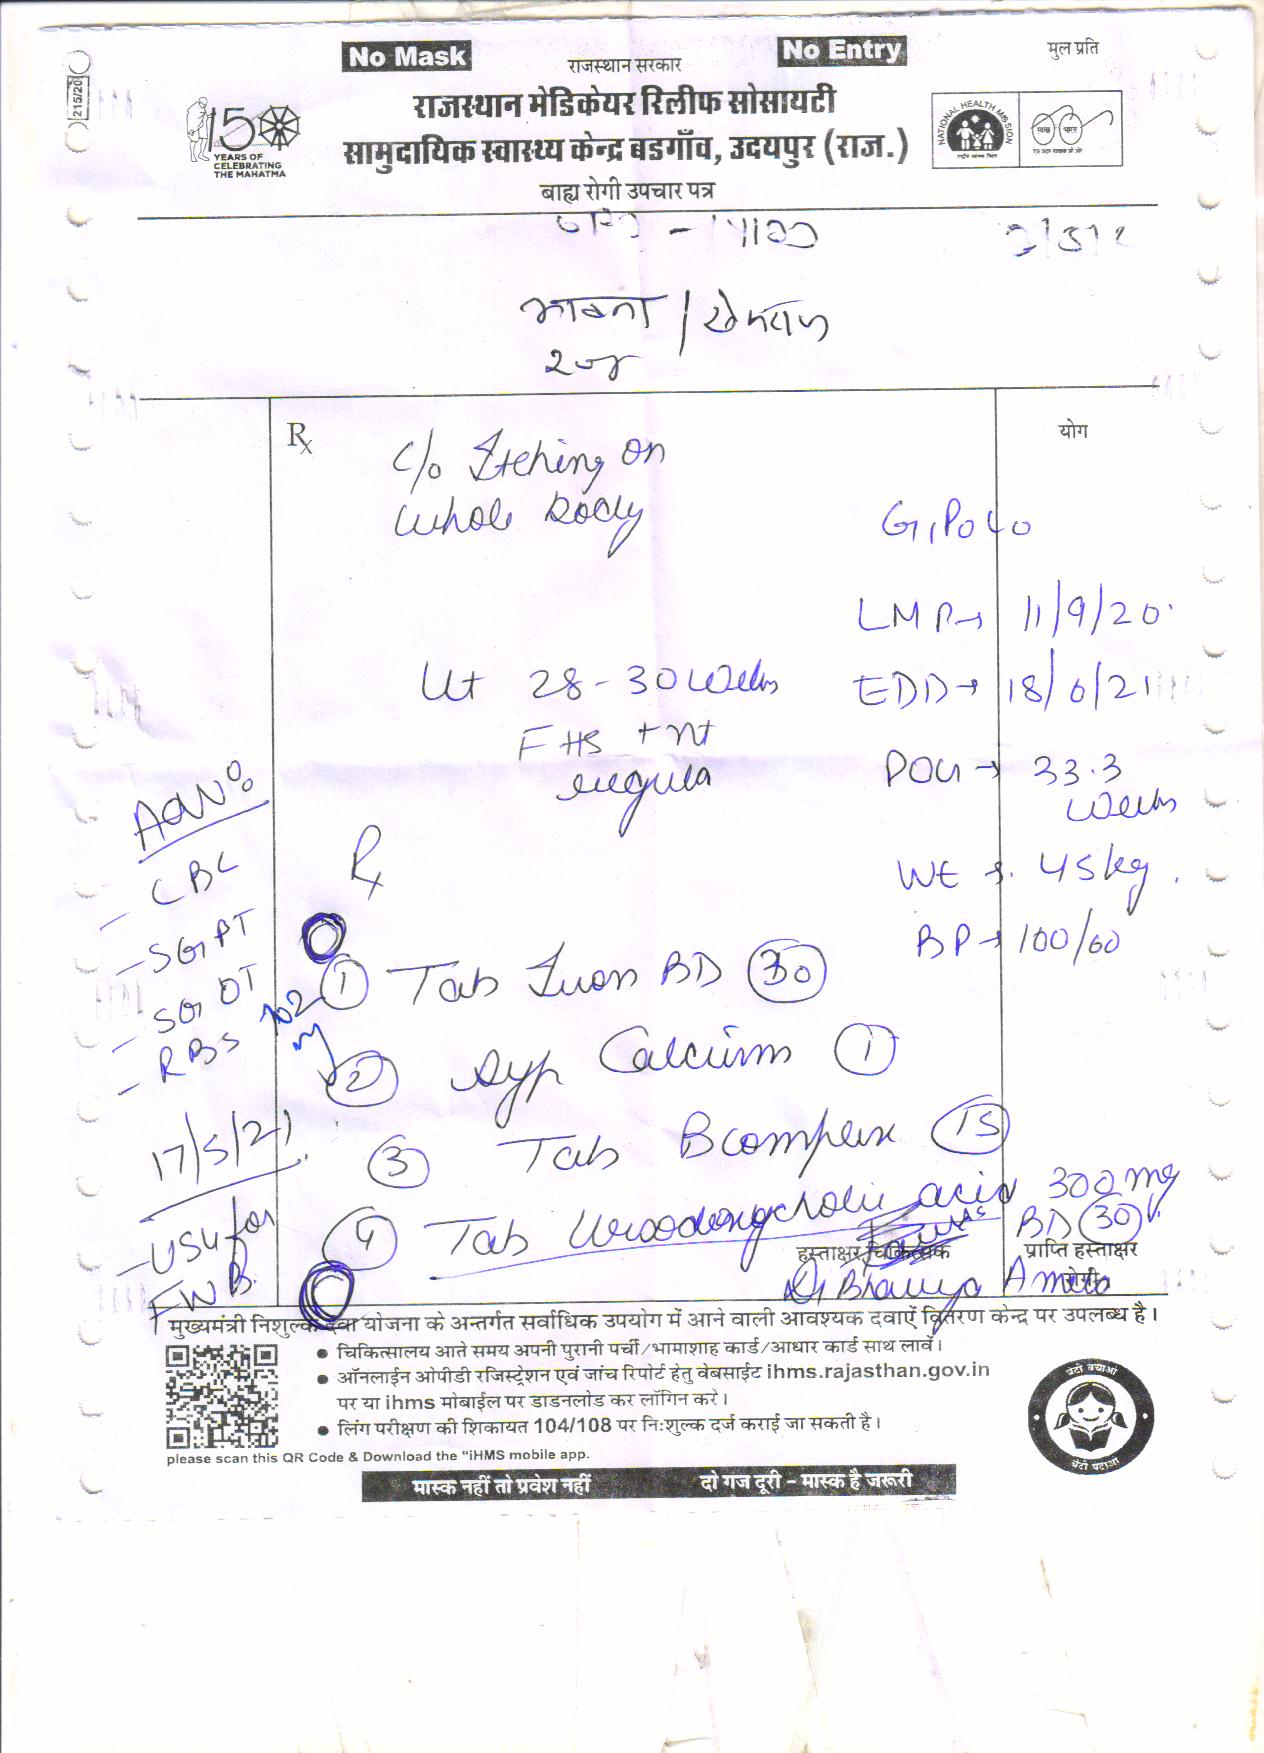 No Mask
No Entry
मुल प्रति
राजस्थान सरकार
215/20
राजस्थान मेडिकेयर रिलीफ सोसायटी
सामुदायिक स्वास्थ्य केन्द्र बडगाँव, उदयपुर (राज.)
बाह्य रोगी उपचार पत्र
150
YEARS OF
CELEBRATING
THE MAHATMA
NATIONAL HEALTH MISSION
राष्ट्रीय स्वास्थ्य मिशन
स्वच्छ भारत
भावना /
Rx
योग
C/o Itching on
whole body
G1P0L0
LMP→ 11/9/20
EDD→ 18/6/21
POG→ 33.3
weeks
Wt → 45kg
BP→ 100/60
Ut 28-30 weeks
FHS +nt
regular
Adv:
- CBC
- SGPT
- SGOT
- RBS 102
17/5/21
- USG for
FWB
Rx
① Tab Iron BD 30
② Syp Calcium ①
③ Tab Bcomplex 15
④ Tab Ursodeoxycholic acid 300mg
BD 30
हस्ताक्षर चिकित्सक
प्राप्ति हस्ताक्षर
रोगी
Dr Bhavya Ameta
मुख्यमंत्री निशुल्क दवा योजना के अन्तर्गत सर्वाधिक उपयोग में आने वाली आवश्यक दवाऐं वितरण केन्द्र पर उपलब्ध है।
• चिकित्सालय आते समय अपनी पुरानी पर्ची/भामाशाह कार्ड/आधार कार्ड साथ लावें।
• ऑनलाईन ओपीडी रजिस्ट्रेशन एवं जांच रिपोर्ट हेतु वेबसाईट ihms.rajasthan.gov.in
पर या ihms मोबाईल पर डाडनलोड कर लॉगिन करे।
• लिंग परीक्षण की शिकायत 104/108 पर नि:शुल्क दर्ज कराई जा सकती है।
please scan this QR Code & Download the "iHMS mobile app.
बेटी बचाओ
बेटी पढाओ
मास्क नहीं तो प्रवेश नहीं
दो गज दूरी - मास्क है जरूरी